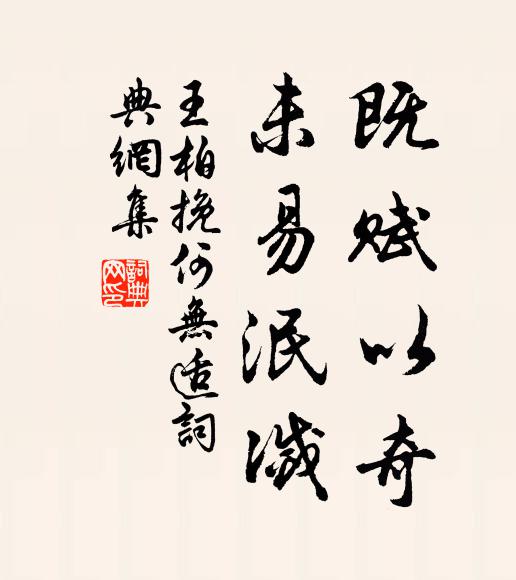 既賦以奇
未易泯滅
王柏挽何無適詞
典網集
詞典網印